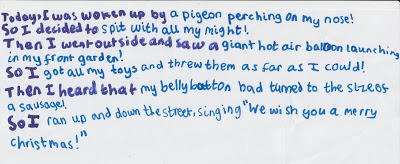 Today, I was woken up by a pigeon perching on my nose!
So I decided to spit with all my might!
Then I went outside and saw a giant hot air baloon launching
in my front garden!
So I got all my toys and threw them as far as I could!
Then I heard that my belly button had turned to the size of
a sausage!
So I ran up and down the street, singing "We wish you a merry
christmas!"